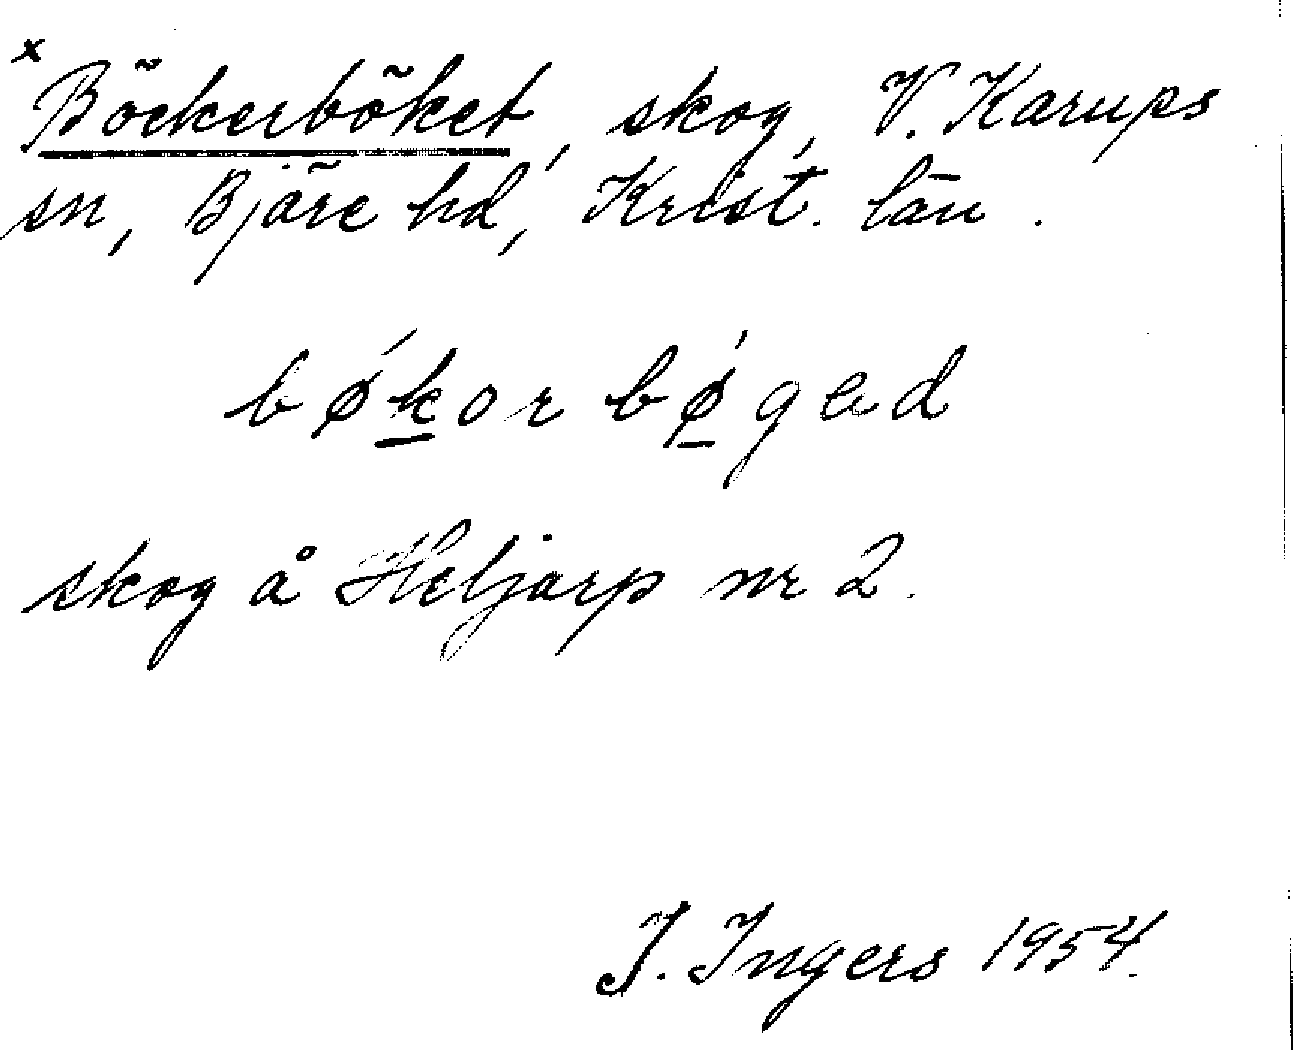 x
Böckerböket, skog, V. Karups
sn, Bjäre hd, Krist. län.
bǿkor bǿgad
skog å Heljarp nr 2.
J. Ingers 1954.